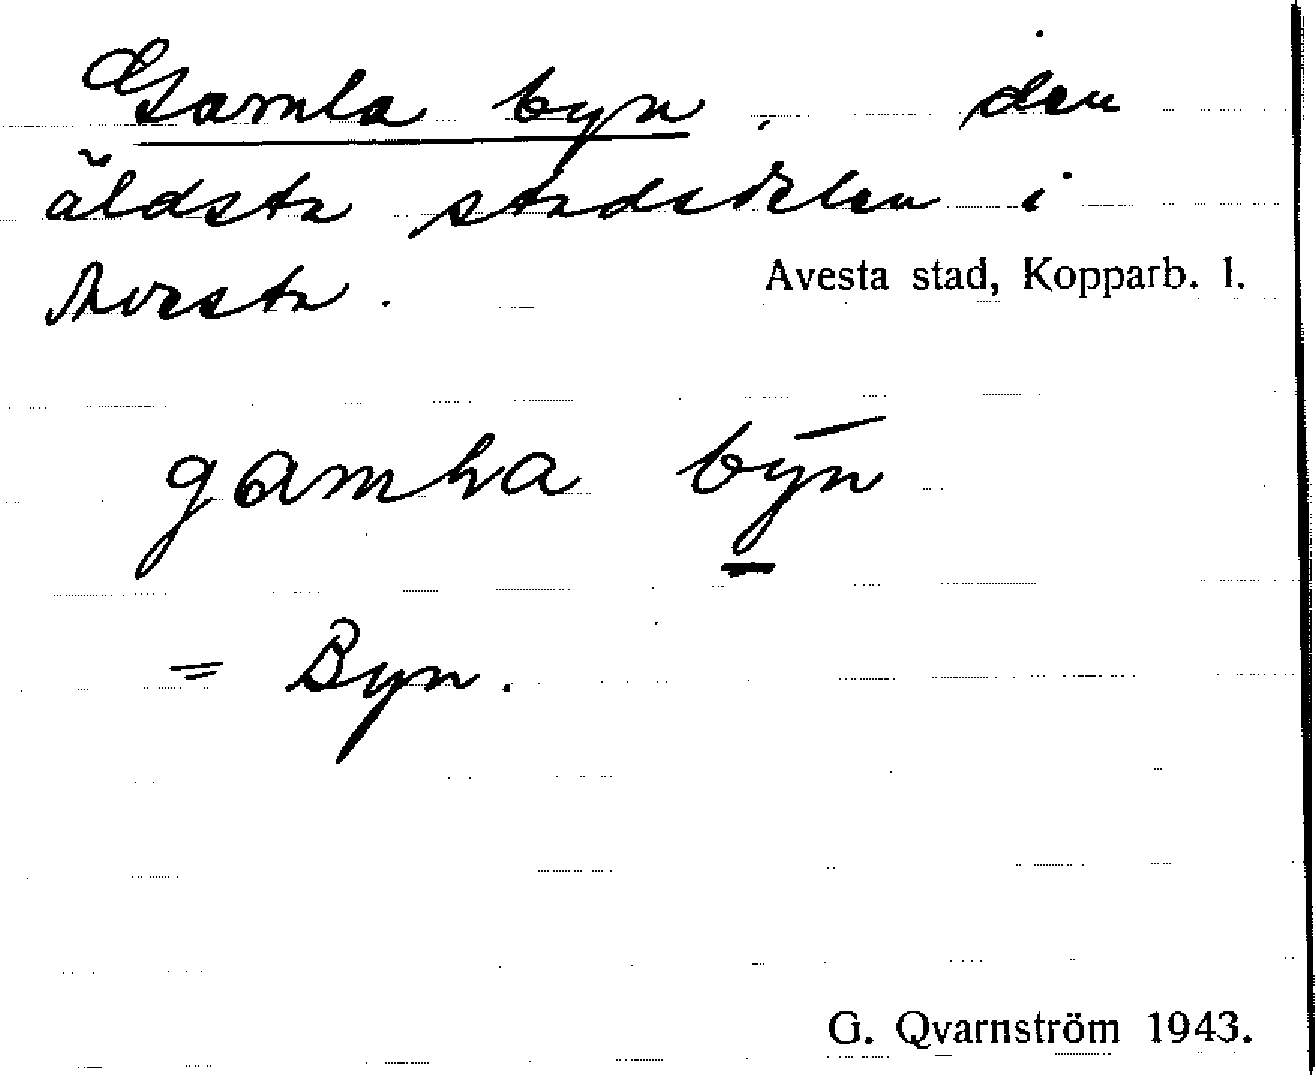 Gamla byn, den
äldsta stadsdelen i
Avesta.
Avesta stad, Kopparb. l.
gamla byn
= Byn.
G. Qvarnström 1943.